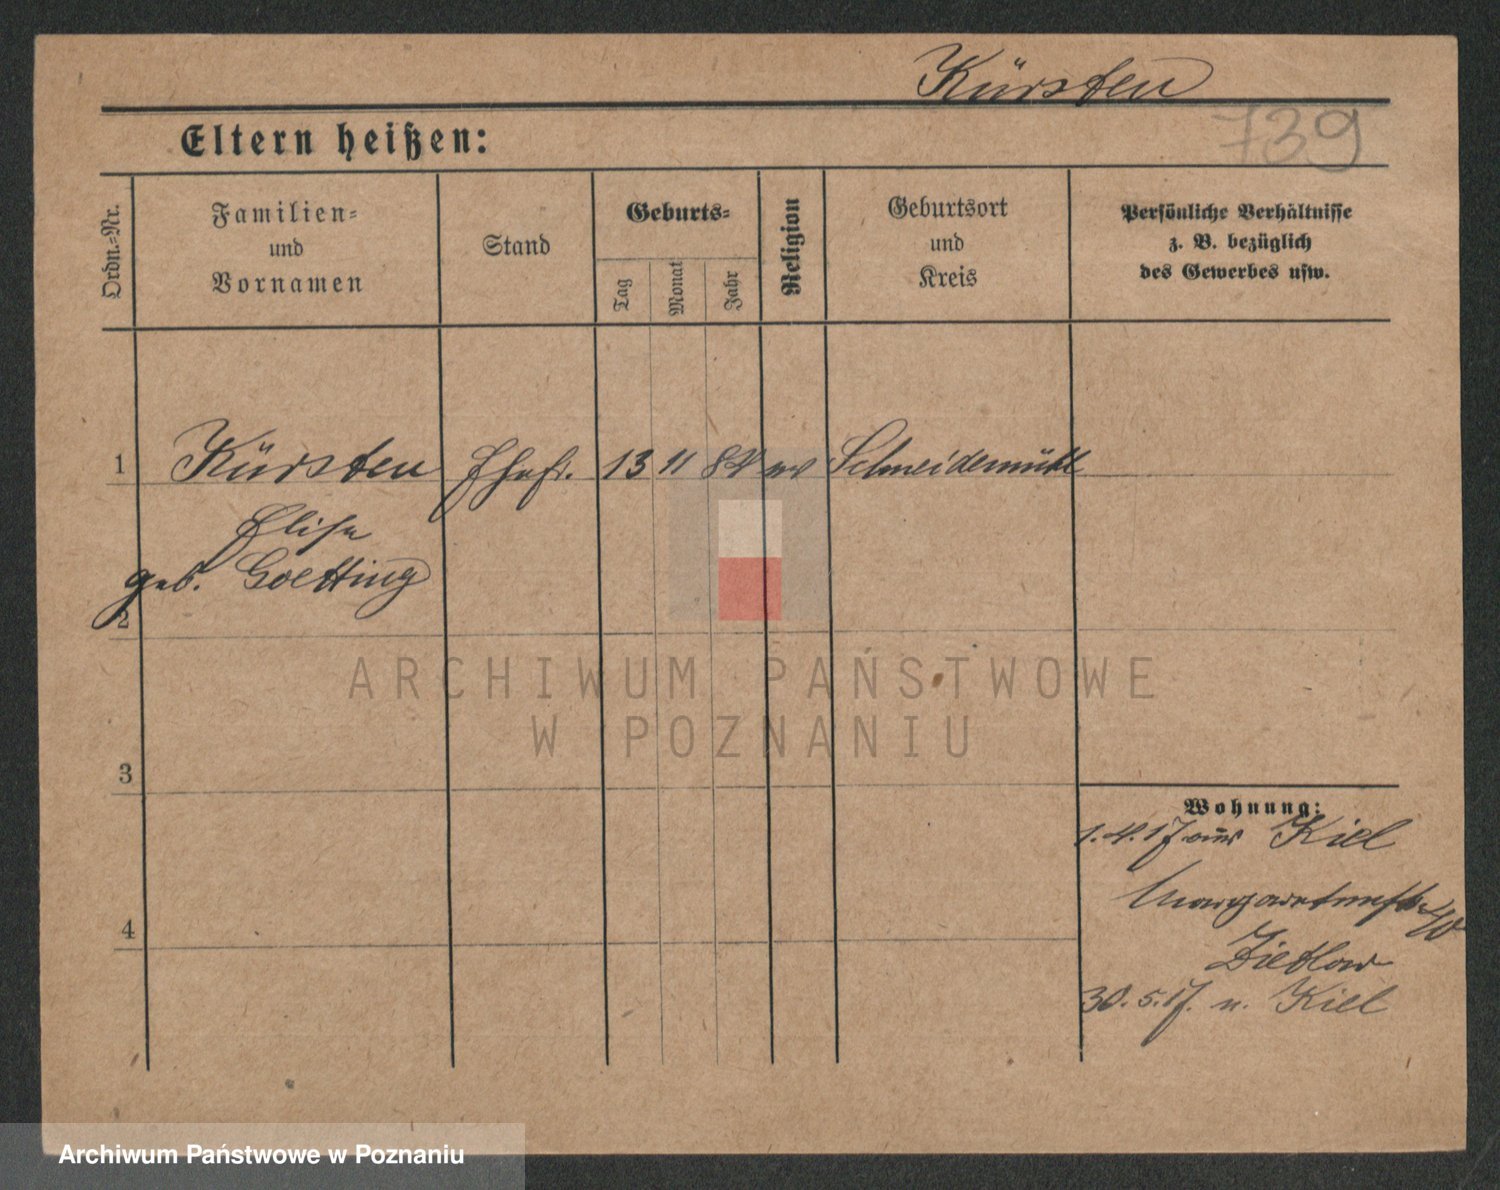 Kürsten
Eltern heißen:
739
Ordn.-Nr.
Familien-
und
Vornamen
Stand
Geburts-
Tag
Monat
Jahr
Religion
Geburtsort
und
Kreis
Persönliche Verhältnisse
z. B. bezüglich
des Gewerbes usw.
1 Kürsten Ehefr. 13 11 84 ev Schneidemühl
Elise
geb. Goetting
2
3
4
Wohnung:
1.4.17 aus Kiel
Margaretenstr. 40
Zietlow
30.5.17. n. Kiel
ARCHIWUM PAŃSTWOWE
W POZNANIU
Archiwum Państwowe w Poznaniu